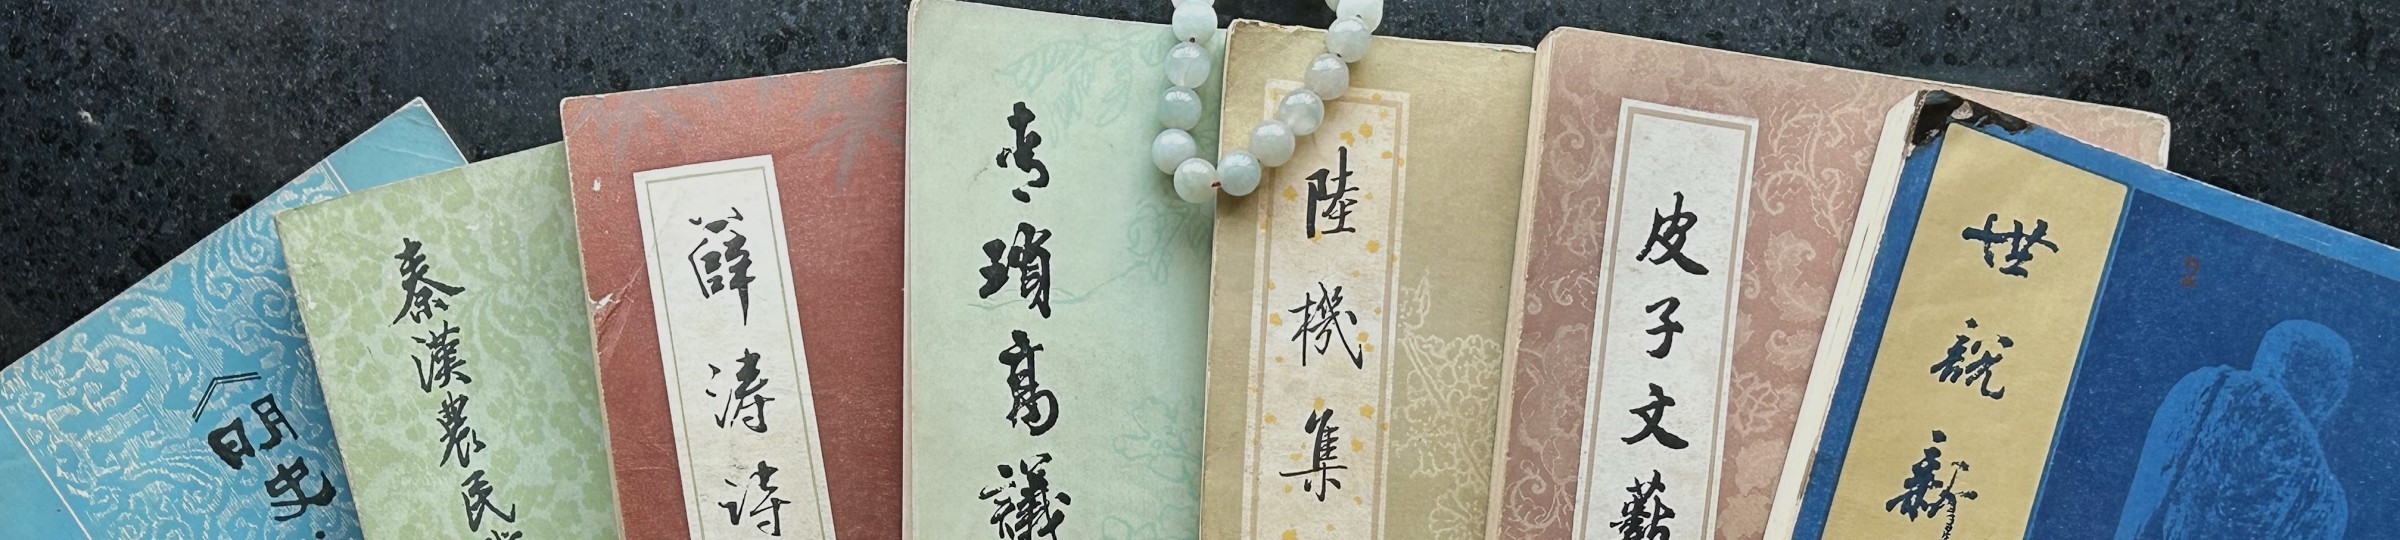 《明史
秦漢農民
薛涛诗
青瑣高議
陸機集
皮子文藪
世說新